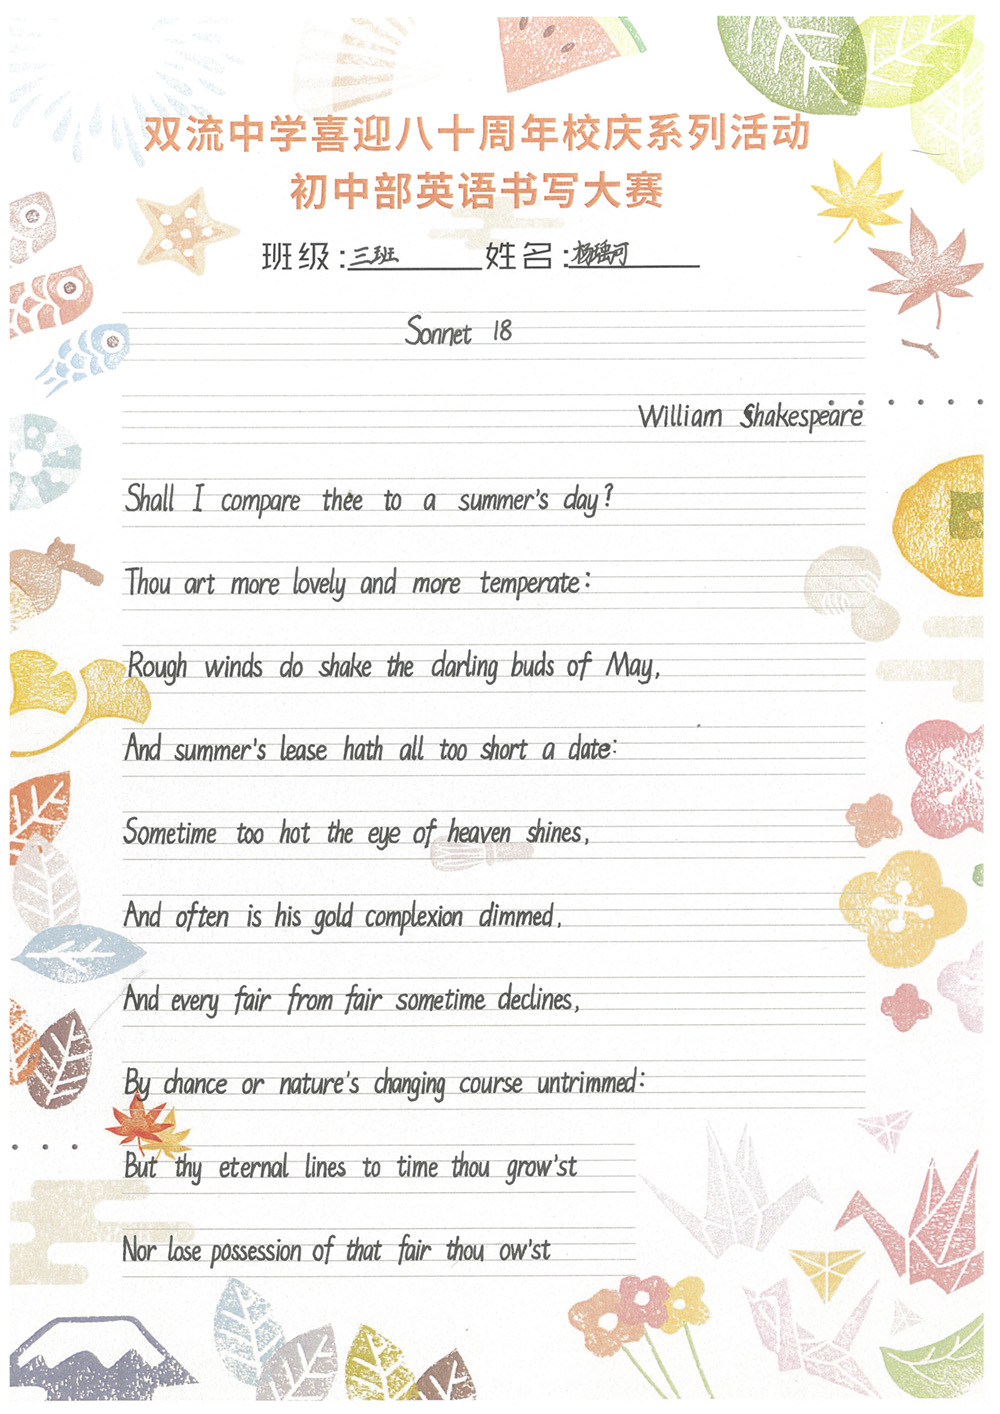 双流中学喜迎八十周年校庆系列活动
初中部英语书写大赛
班级:三班 姓名:杨瑀河
Sonnet 18
William Shakespeare
Shall I compare thee to a summer's day?
Thou art more lovely and more temperate:
Rough winds do shake the darling buds of May,
And summer's lease hath all too short a date:
Sometime too hot the eye of heaven shines,
And often is his gold complexion dimmed,
And every fair from fair sometime declines,
By chance or nature's changing course untrimmed:
But thy eternal lines to time thou grow'st
Nor lose possession of that fair thou ow'st